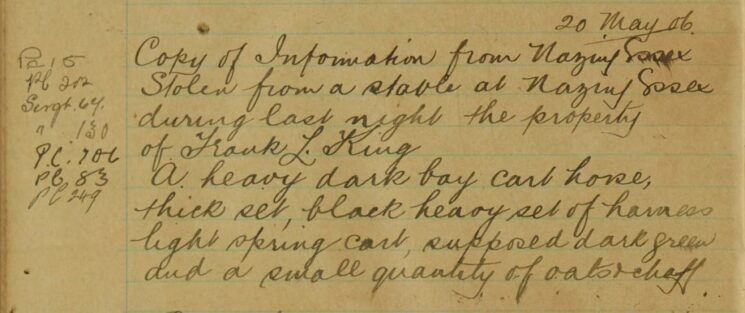 20 May 06.
Copy of Information from Nazing Essex
Stolen from a stable at Nazing Essex
during last night the property
of Frank L. King
A heavy dark bay cart horse,
thick set, black heavy set of harness
light spring cart, supposed dark green
and a small quantity of oats & chaff
15
PC 202
Sergt. 64.
" 130
P.C. 706
PC 83
PC 249